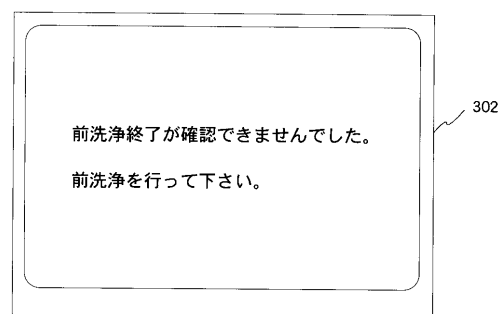 前洗浄終了が確認できませんでした。
前洗浄を行って下さい。
302